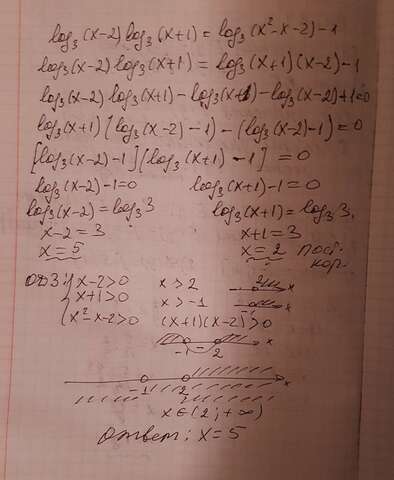 log₃(x-2) log₃(x+1) = log₃(x²-x-2)-1
log₃(x-2) log₃(x+1) = log₃(x+1)(x-2)-1
log₃(x-2) log₃(x+1) - log₃(x+1) - log₃(x-2)+1=0
log₃(x+1) (log₃(x-2) -1) - (log₃(x-2)-1)=0
[log₃(x-2)-1] [log₃(x+1) -1] = 0
log₃(x-2)-1=0 log₃(x+1)-1=0
log₃(x-2) = log₃3 log₃(x+1) = log₃3,
x-2=3 x+1=3
x=5 x=2 пост. кор.
ОДЗ: { x-2>0 x>2 2 x
x+1>0 x>-1 -1 x
x²-x-2>0 (x+1)(x-2)>0
-1 - 2 x
-1 2 x
x∈(2;+∞)
Ответ: x=5